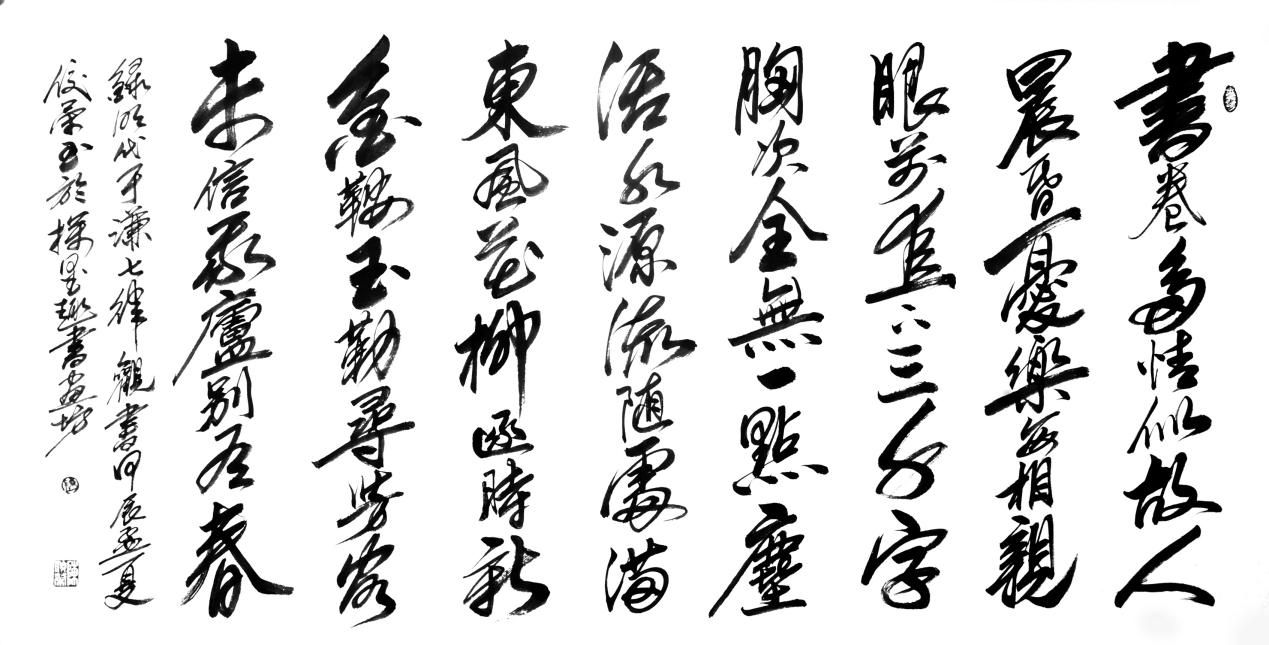 書卷多情似故人
晨昏憂樂每相親
眼前直下三千字
胸次全無一點塵
活水源流随處滿
東風花柳逐時新
金鞍玉勒尋芳客
未信我廬別有春
錄明代于謙七律觀書甲辰孟夏
榮玉於墨趣書畫坊